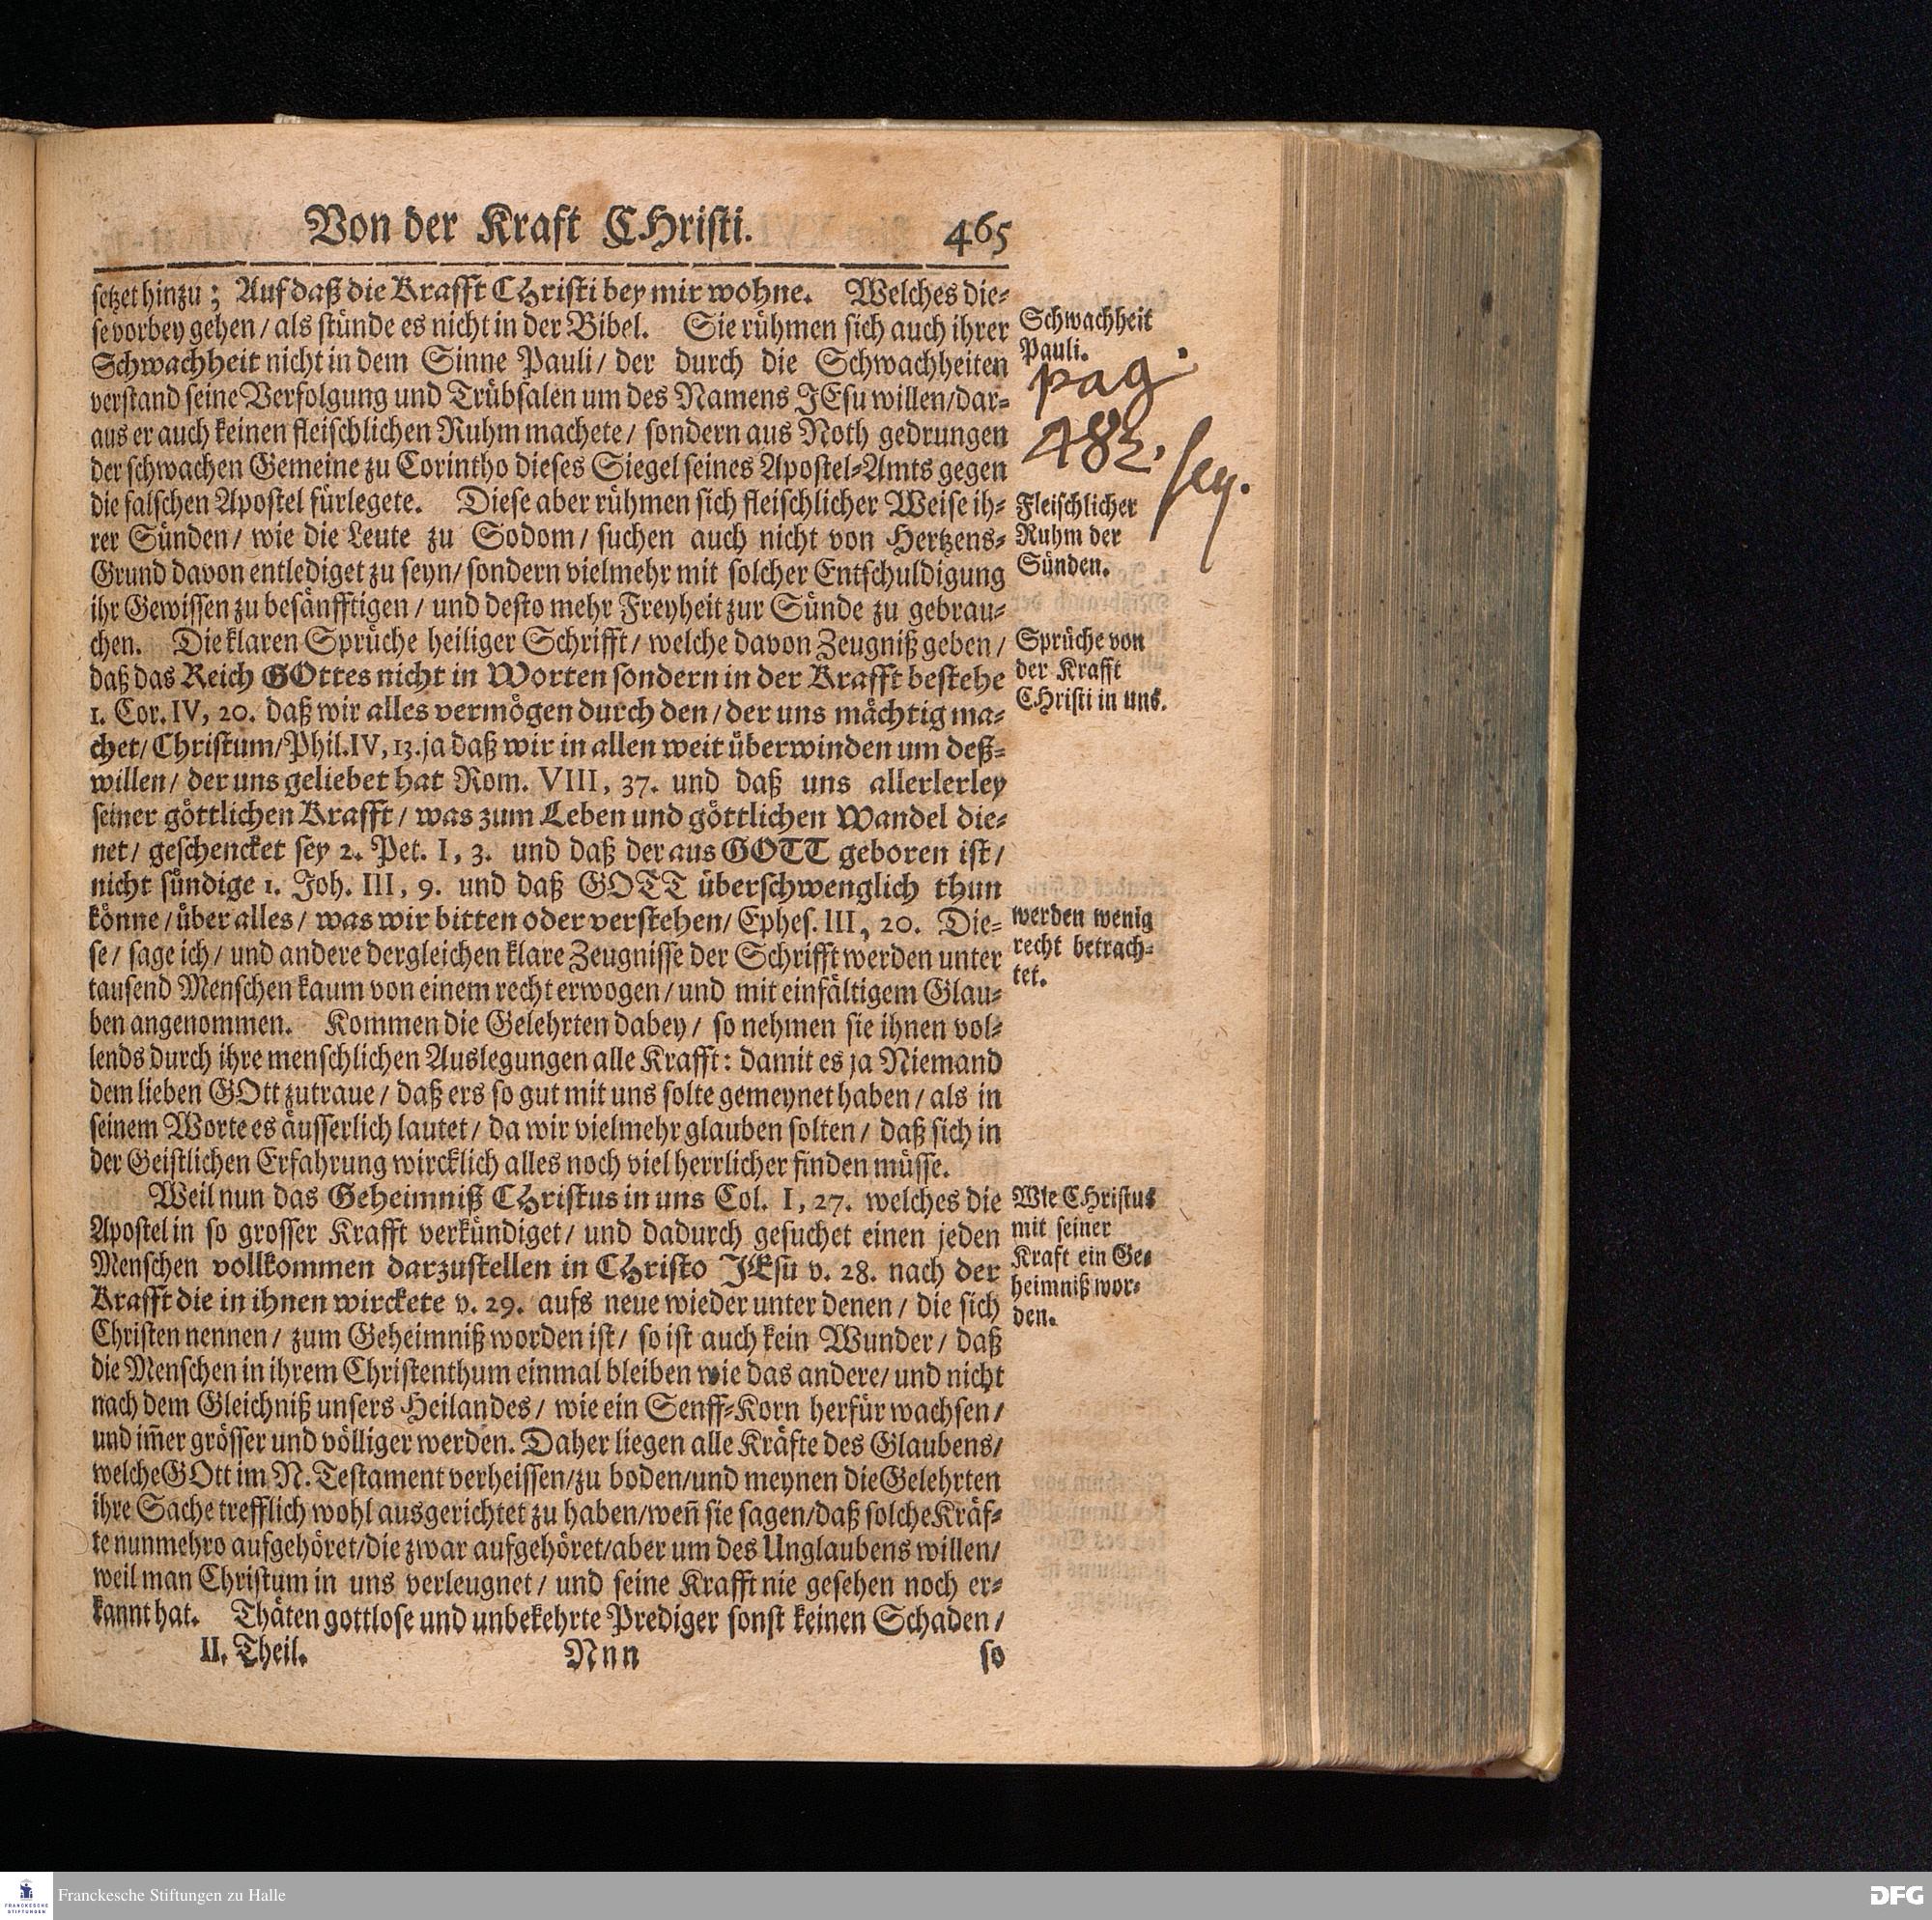 Von der Kraft CHristi. 465
setzet hinzu; Auf daß die Krafft CHristi bey mir wohne. Welches die-
se vorbey gehen / als stünde es nicht in der Bibel. Sie rühmen sich auch ihrer
Schwachheit nicht in dem Sinne Pauli / der durch die Schwachheiten
verstand seine Verfolgung und Trübsalen um des Namens JEsu willen / dar-
aus er auch keinen fleischlichen Ruhm machete / sondern aus Noth gedrungen
der schwachen Gemeine zu Corintho dieses Siegel seines Apostel-Amts gegen
die falschen Apostel fürlegete. Diese aber rühmen sich fleischlicher Weise ih-
rer Sünden / wie die Leute zu Sodom / suchen auch nicht von Hertzens-
Grund davon entlediget zu seyn / sondern vielmehr mit solcher Entschuldigung
ihr Gewissen zu besänfftigen / und desto mehr Freyheit zur Sünde zu gebrau-
chen. Die klaren Sprüche heiliger Schrifft / welche davon Zeugniß geben /
daß das Reich GOttes nicht in Worten sondern in der Krafft bestehe
1. Cor. IV, 20. daß wir alles vermögen durch den / der uns mächtig ma-
chet / Christum / Phil. IV, 13. ja daß wir in allen weit überwinden um deß-
willen / der uns geliebet hat Rom. VIII, 37. und daß uns allerlerley
seiner göttlichen Krafft / was zum Leben und göttlichen Wandel die-
net / geschencket sey 2. Pet. I, 3. und daß der aus GOTT geboren ist /
nicht sündige 1. Joh. III, 9. und daß GOTT überschwenglich thun
könne / über alles / was wir bitten oder verstehen / Ephes. III, 20. Die-
se / sage ich / und andere dergleichen klare Zeugnisse der Schrifft werden unter
tausend Menschen kaum von einem recht erwogen / und mit einfältigem Glau-
ben angenommen. Kommen die Gelehrten dabey / so nehmen sie ihnen vol-
lends durch ihre menschlichen Auslegungen alle Krafft: damit es ja Niemand
dem lieben GOtt zutraue / daß ers so gut mit uns solte gemeynet haben / als in
seinem Worte es äusserlich lautet / da wir vielmehr glauben solten / daß sich in
der Geistlichen Erfahrung wircklich alles noch viel herrlicher finden müsse.
Weil nun das Geheimniß CHristus in uns Col. I, 27. welches die
Apostel in so grosser Krafft verkündiget / und dadurch gesuchet einen jeden
Menschen vollkommen darzustellen in CHristo JEsu v. 28. nach der
Krafft die in ihnen wirckete v. 29. aufs neue wieder unter denen / die sich
Christen nennen / zum Geheimniß worden ist / so ist auch kein Wunder / daß
die Menschen in ihrem Christenthum einmal bleiben wie das andere / und nicht
nach dem Gleichniß unsers Heilandes / wie ein Senff-Korn herfür wachsen /
und im̄er grösser und völliger werden. Daher liegen alle Kräfte des Glaubens /
welche GOtt im N. Testament verheissen / zu boden / und meynen die Gelehrten
ihre Sache trefflich wohl ausgerichtet zu haben / weñ sie sagen / daß solche Kräf-
te nunmehro aufgehöret / die zwar aufgehöret / aber um des Unglaubens willen /
weil man Christum in uns verleugnet / und seine Krafft nie gesehen noch er-
kannt hat. Thäten gottlose und unbekehrte Prediger sonst keinen Schaden /
II. Theil. Nnn so
Schwachheit
Pauli.
pag.
482. seq.
Fleischlicher
Ruhm der
Sünden.
Sprüche von
der Krafft
CHristi in uns.
werden wenig
recht betrach-
tet.
Wie CHristus
mit seiner
Kraft ein Ge-
heimniß wor-
den.
Franckesche Stiftungen zu Halle
FRANCKESCHE
STIFTUNGEN
DFG